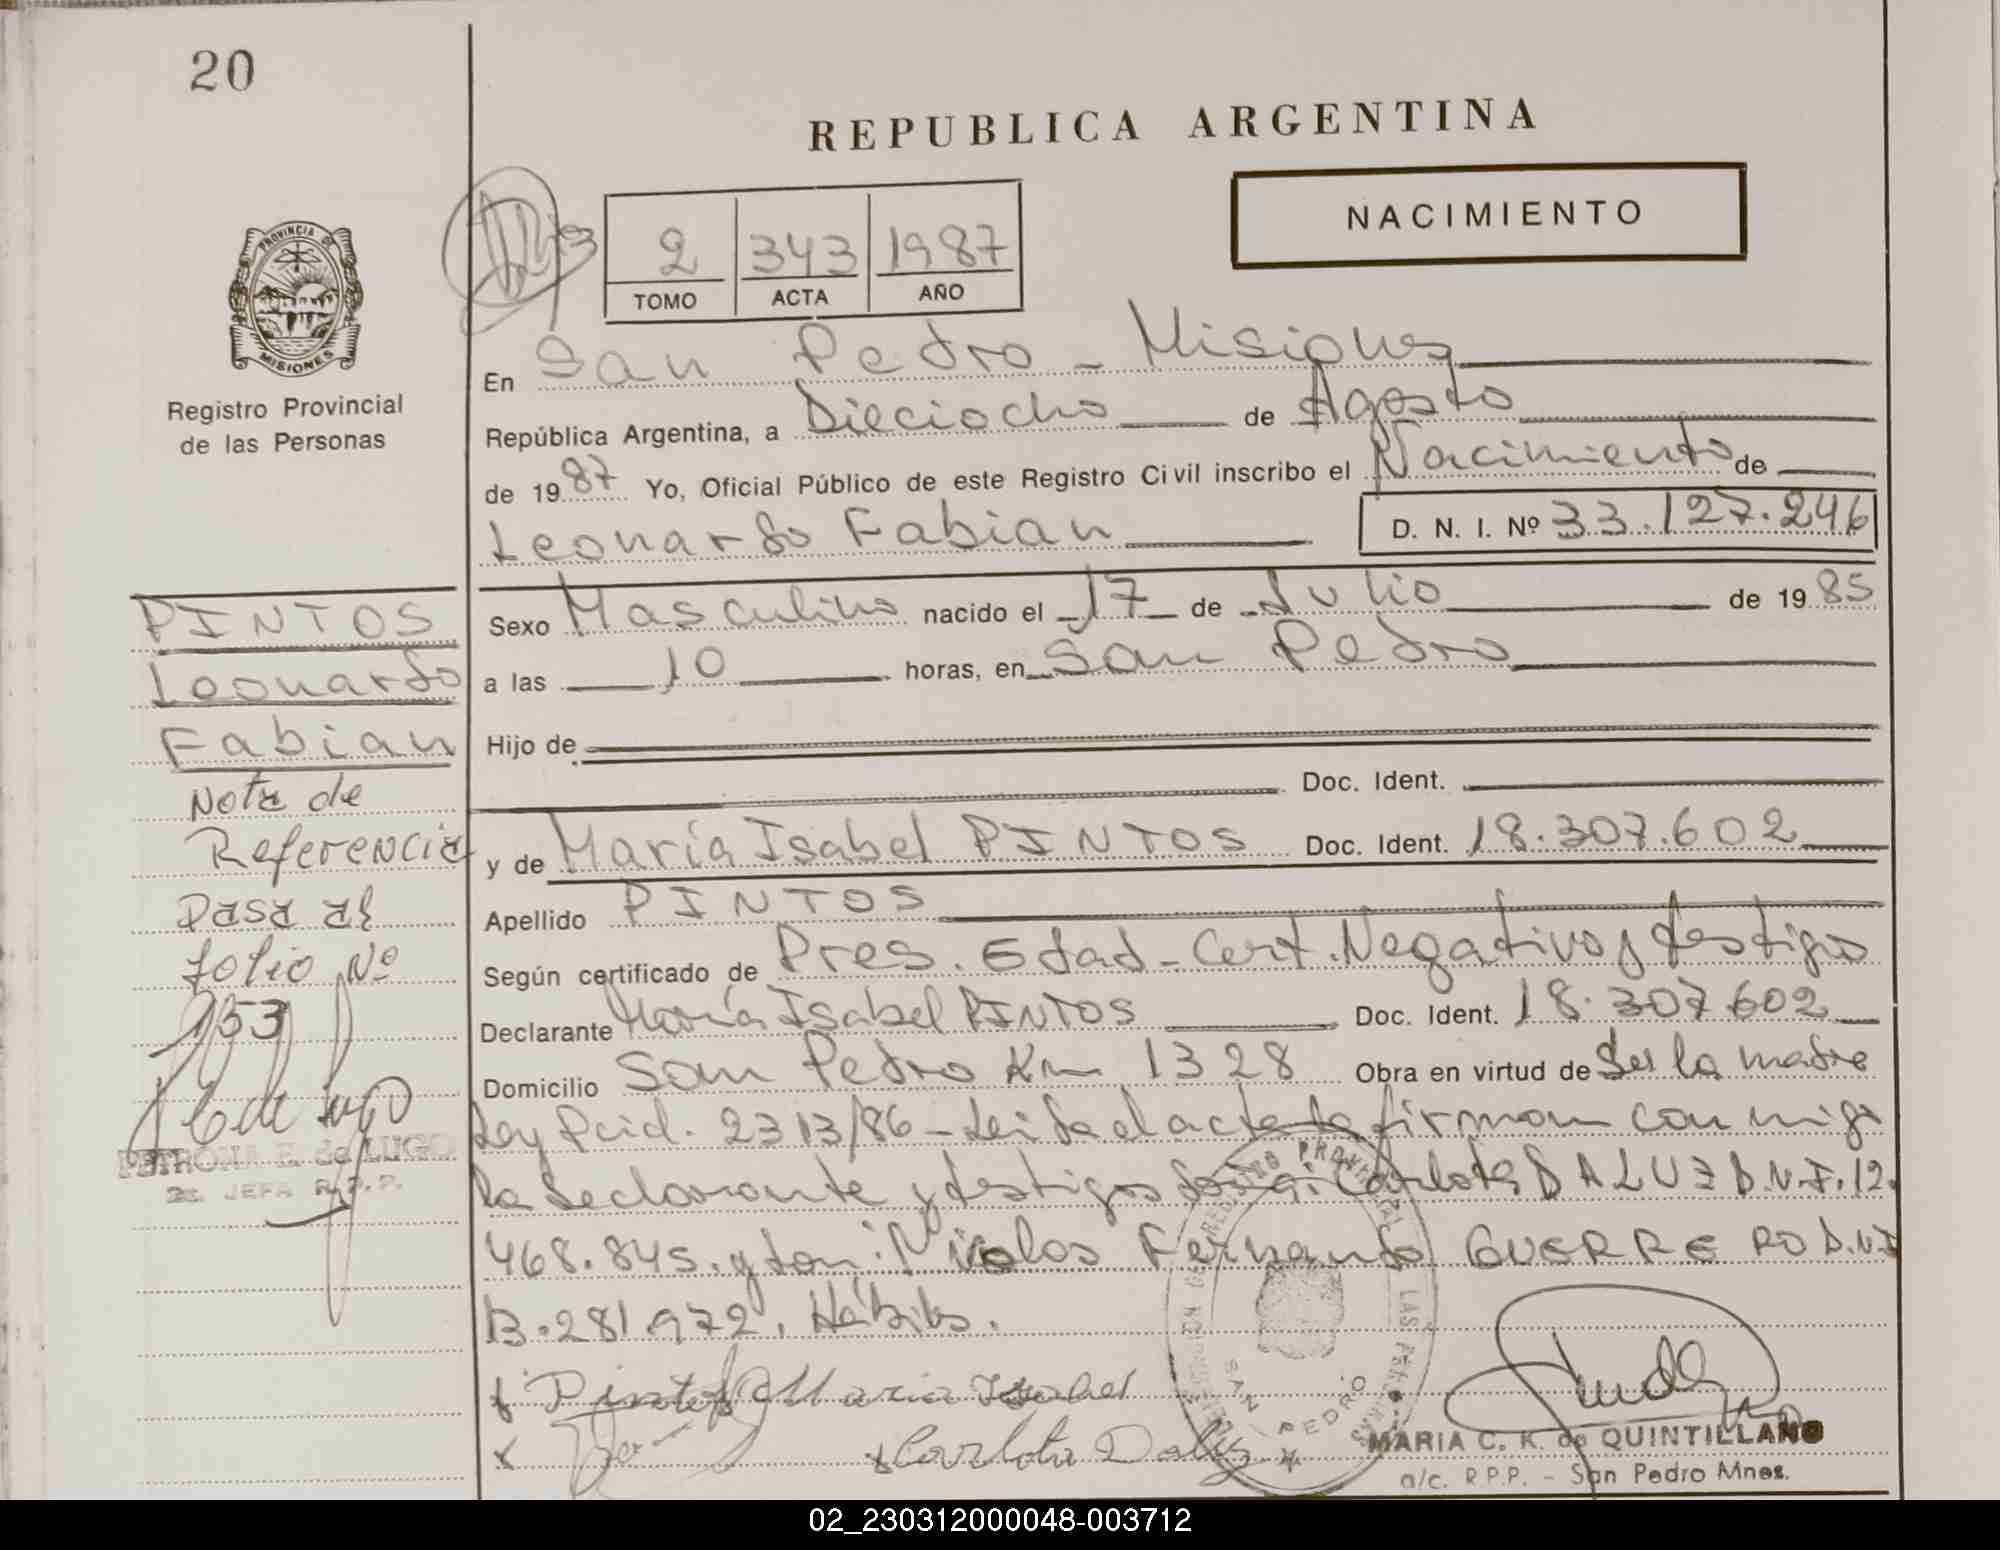 20
REPUBLICA ARGENTINA
NACIMIENTO
2 343 1987
TOMO ACTA AÑO
PROVINCIA DE
MISIONES
Registro Provincial
de las Personas
En San Pedro - Misiones
República Argentina, a Dieciocho de Agosto
de 19 87 Yo, Oficial Público de este Registro Civil inscribo el Nacimiento de
Leonardo Fabian D. N. I. Nº 33.127.246
PINTOS
Leonardo
Fabian
Nota de
Referencia
Pasa al
folio Nº
153
PETRONA E. de LUGO
2a. JEFA R.P.P.
Sexo Masculino nacido el 17 de Julio de 19 85
a las 10 horas, en San Pedro
Hijo de
Doc. Ident.
y de María Isabel PINTOS Doc. Ident. 18.307.602
Apellido PINTOS
Según certificado de Pres. Edad - Cert. Negativo y testigos
Declarante María Isabel PINTOS Doc. Ident. 18.307.602
Domicilio San Pedro Km 1328 Obra en virtud de Ser la madre
Ley Pcial. 2313/86 - Leida el acta la firman conmigo
la declarante y testigos Carlota DALUZ D.N.I. 12.
468.845. y don: Nicolas Fernando GUERRERO D.N.I
13.281.972. Hábiles.
Pintos Maria Isabel
Carlota Daluz
REGISTRO PROVINCIAL DE LAS PERSONAS
SAN PEDRO
MARIA C. K. de QUINTILLANO
a/c. R.P.P. - San Pedro Mnes.
02_230312000048-003712